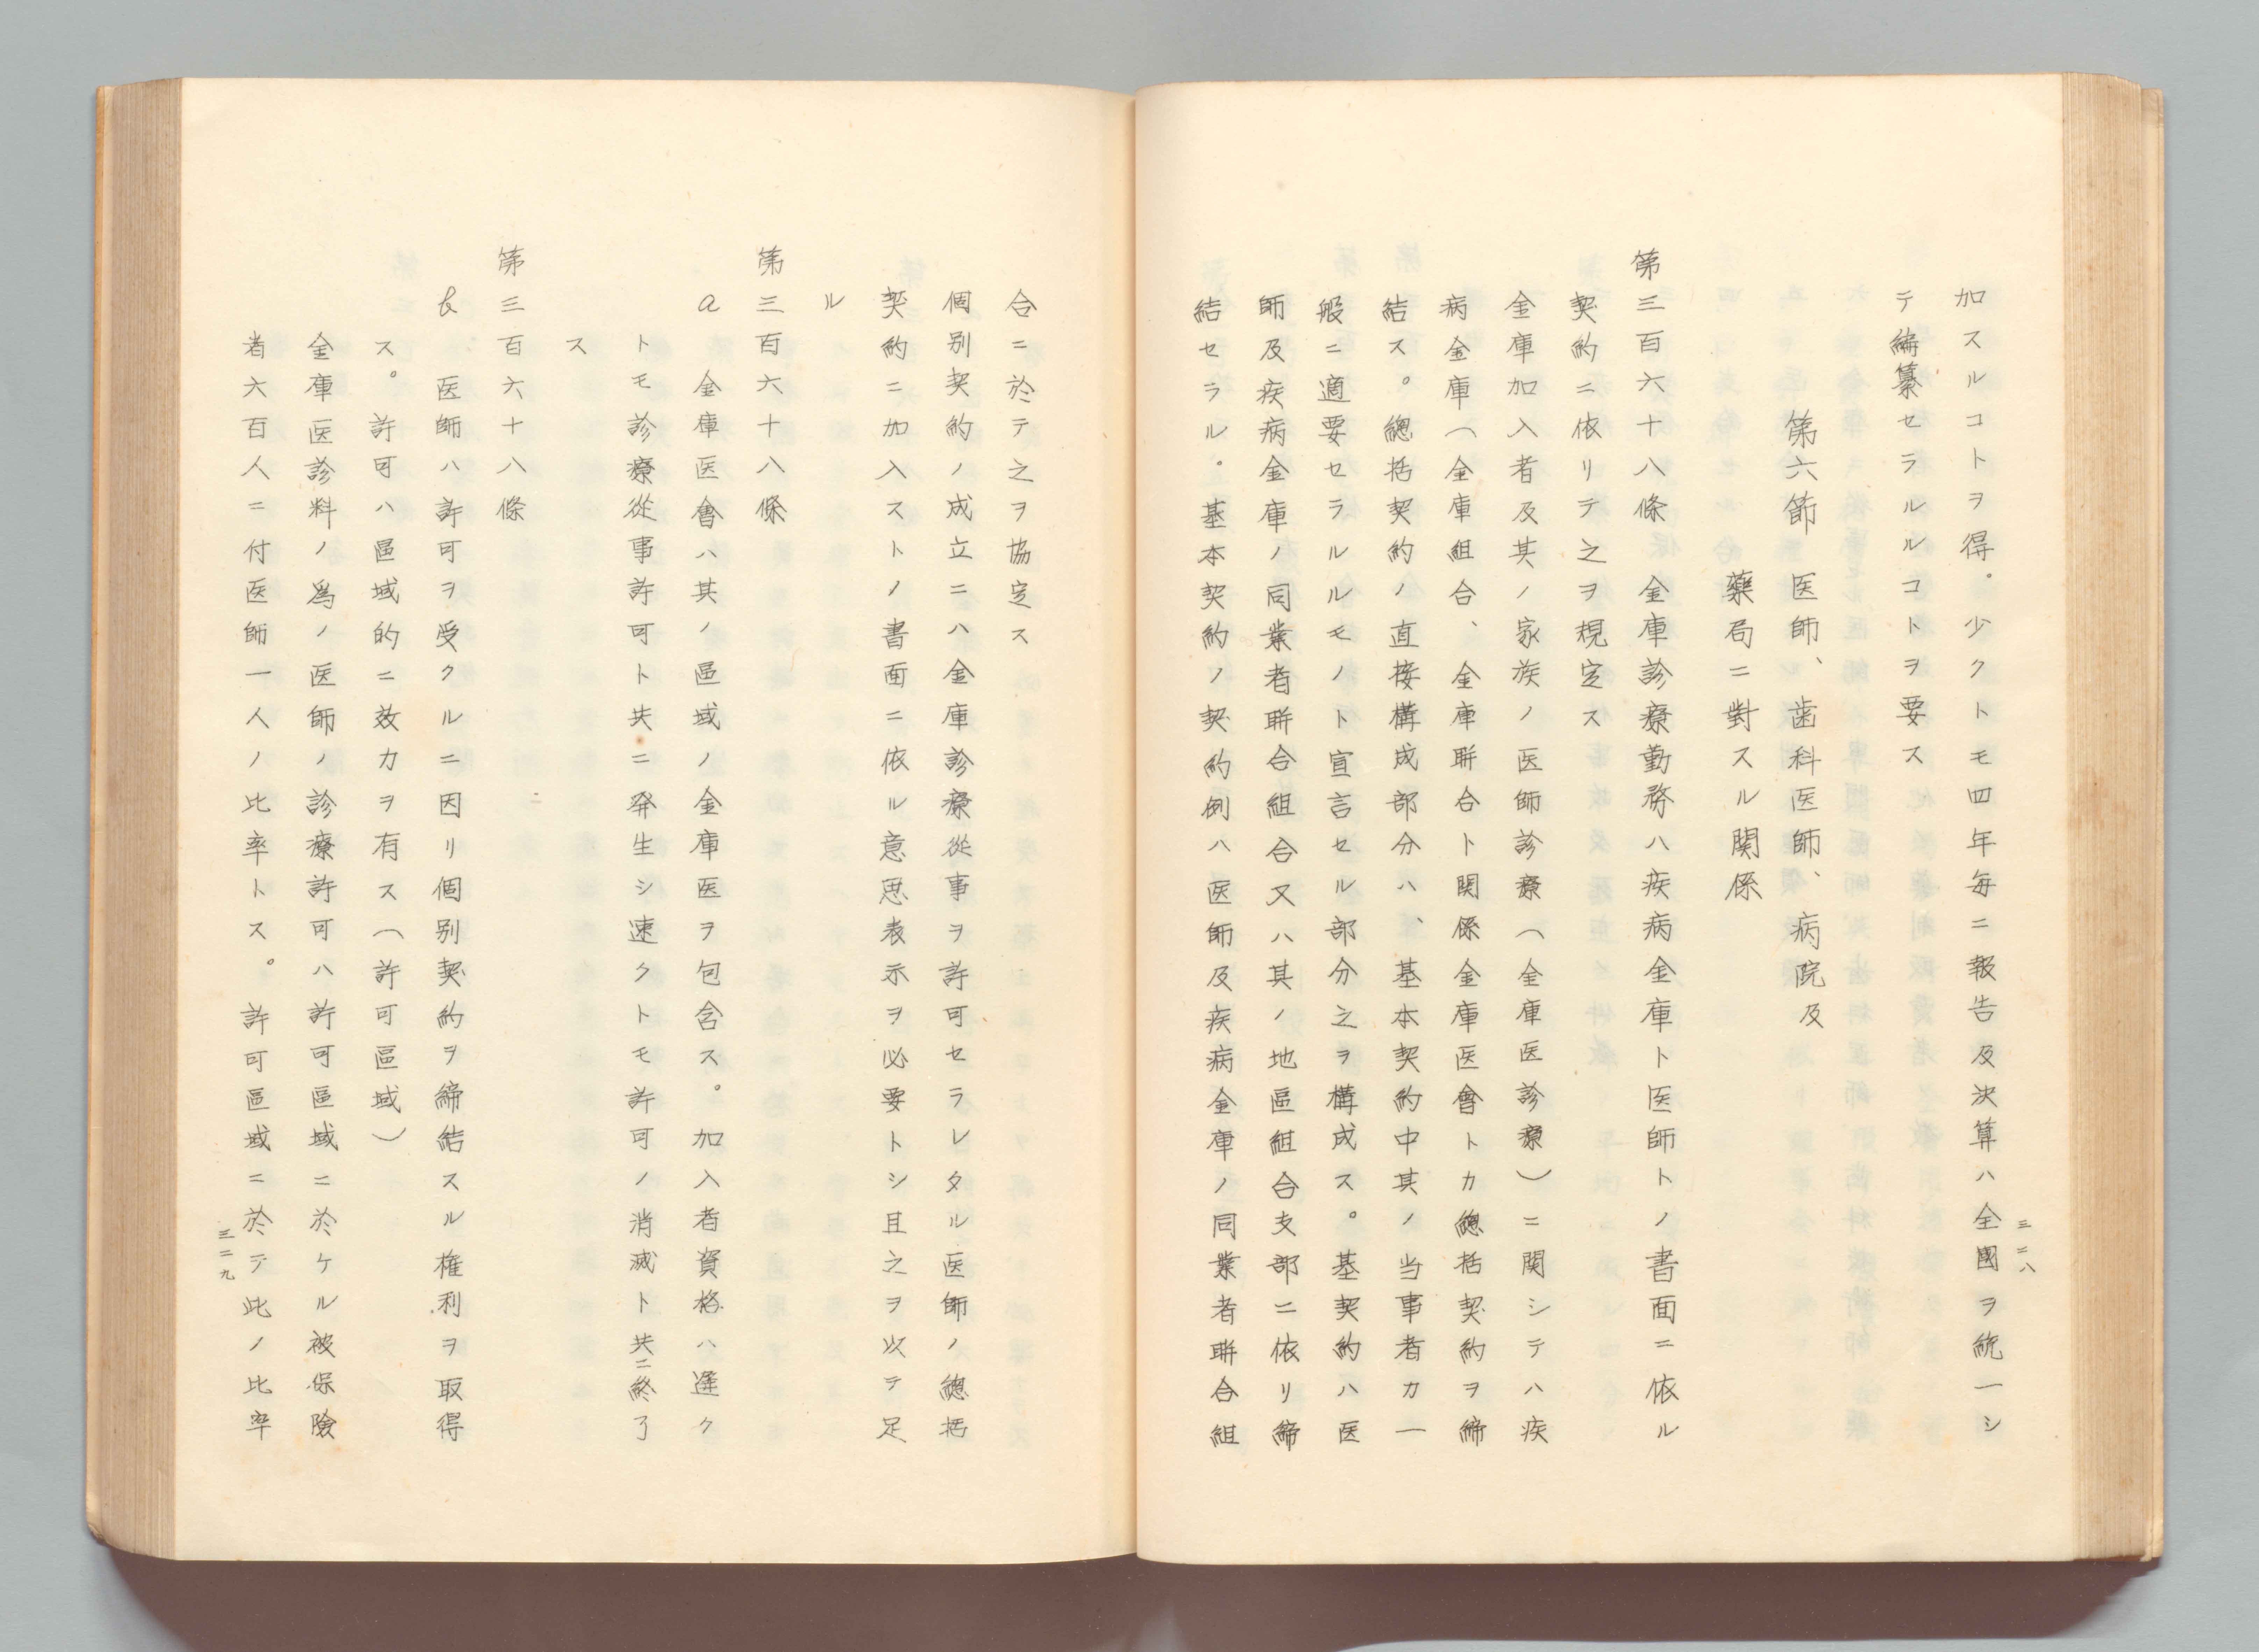 加スルコトヲ得。少クトモ四年毎ニ報告及決算ハ全國ヲ統一シ
テ編纂セラルルコトヲ要ス
第六節　医師、歯科医師、病院及
藥局ニ對スル関係
第三百六十八條　金庫診療勤務ハ疾病金庫ト医師トノ書面ニ依ル
契約ニ依リテ之ヲ規定ス
金庫加入者及其ノ家族ノ医師診療（金庫医診療）ニ関シテハ疾
病金庫（金庫組合、金庫聯合ト関係金庫医會トカ總括契約ヲ締
結ス。總括契約ノ直接構成部分ハ、基本契約中其ノ当事者カ一
般ニ適要セラルルモノト宣言セル部分之ヲ構成ス。基契約ハ医
師及疾病金庫ノ同業者聯合組合又ハ其ノ地區組合支部ニ依リ締
結セラル。基本契約ノ契約例ハ医師及疾病金庫ノ同業者聯合組
三二八
合ニ於テ之ヲ協定ス
個別契約ノ成立ニハ金庫診療從事ヲ許可セラレタル医師ノ總括
契約ニ加入ストノ書面ニ依ル意思表示ヲ必要トシ且之ヲ以テ足
ル
第三百六十八條
a　金庫医會ハ其ノ區域ノ金庫医ヲ包含ス。加入者資格ハ遅ク
トモ診療從事許可ト共ニ発生シ速クトモ許可ノ消滅ト共ニ終了
ス
第三百六十八條
b　医師ハ許可ヲ受クルニ因リ個別契約ヲ締結スル権利ヲ取得
ス。許可ハ區域的ニ效力ヲ有ス（許可區域）
金庫医診料ノ為ノ医師ノ診療許可ハ許可區域ニ於ケル被保險
者六百人ニ付医師一人ノ比率トス。許可區域ニ於テ此ノ比率
三二九